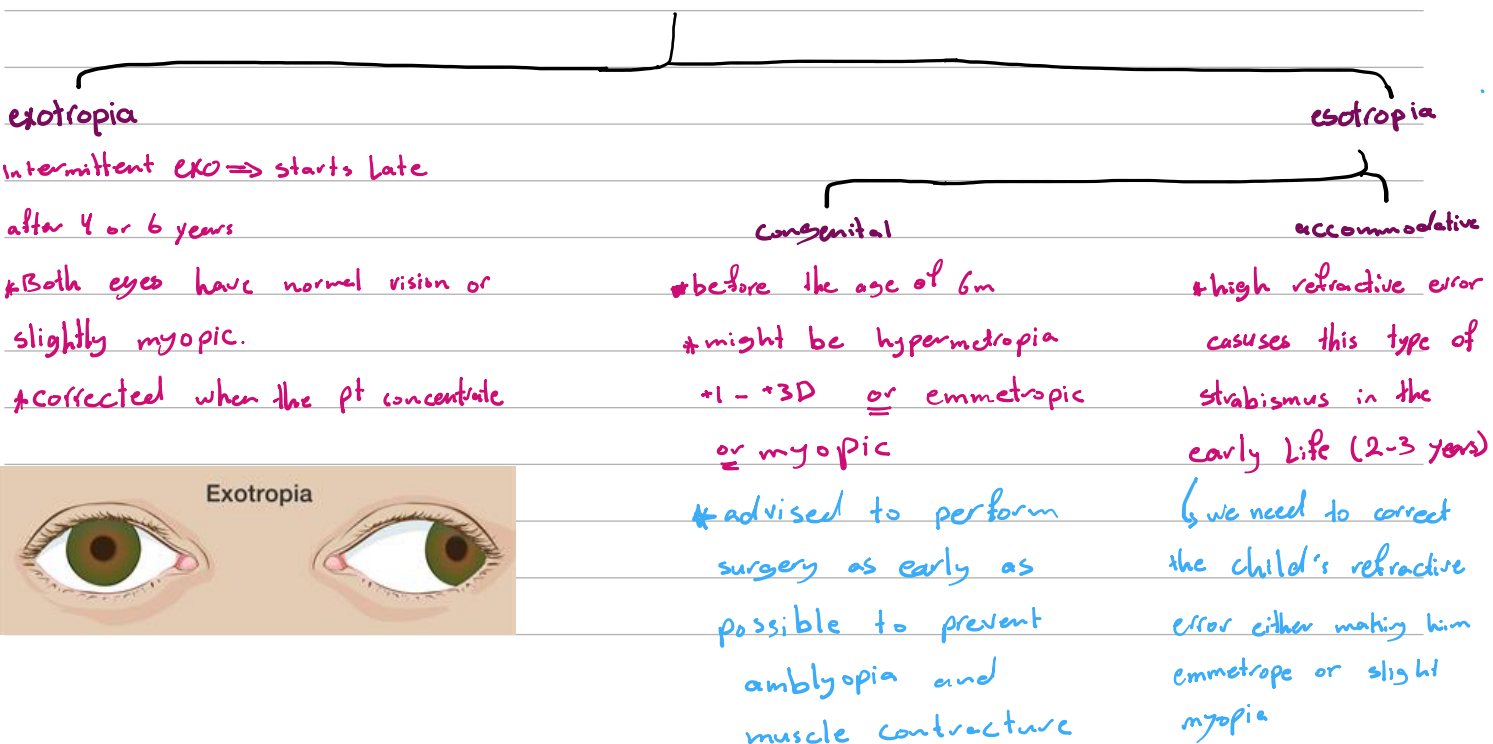 exotropia
Intermittent exo ⇒ starts Late
after 4 or 6 years
*Both eyes have normal vision or
slightly myopic.
*corrected when the pt concentrate
Exotropia
esotropia
congenital
*before the age of 6m
*might be hypermetropia
+1 - +3D or emmetropic
or myopic
*advised to perform
surgery as early as
possible to prevent
amblyopia and
muscle contracture
accommodative
*high refractive error
casuses this type of
strabismus in the
early Life (2-3 years)
↳ we need to correct
the child's refractive
error either making him
emmetrope or slight
myopia